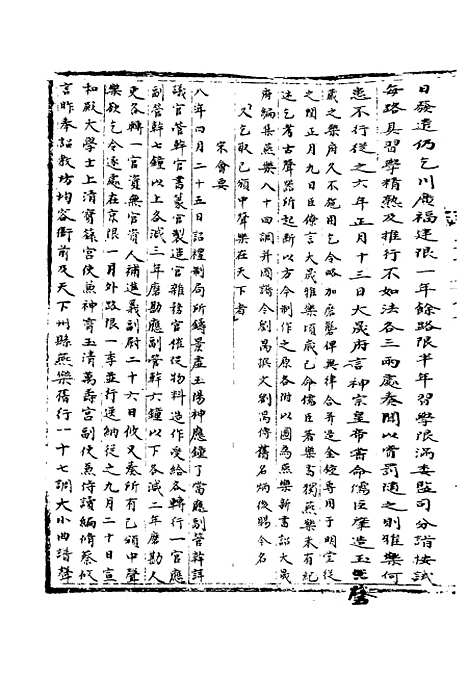 日發遣仍乞川廣福建限一年餘路限半年習學限滿委監司分詣按試
每路具習學精熟及推行不如法各三兩處奏聞以賞罰隨之則雅樂何
患不行從之六年正月十三日大晟府言神宗皇帝嘗命儒臣肇造玉磬
藏之樂府久不施用乞令略加磨礱俾與律合并造金鐘專用于明堂從
之閏正月九日臣僚言大晟雅樂頃歲已命儒臣著樂書獨燕樂未有紀
述乞考古聲器所起斷以方今制作之原各附以圖為燕樂新書詔大晟
府編集燕樂八十四調并圖譜令劉昺撰文劉昺傳舊名炳後賜今名
又乞取已頒中聲樂在天下者
宋會要
八年四月二十五日詔禮制局所鑄景虛玉陽神應鐘了當應副管幹詳
議官管幹官書篆官製造官雜務官催促物料造作受給各轉行一官應
副管幹七鐘以上各減三年磨勘應副管幹六鐘以下各減二年磨勘人
吏各轉一官資無官資人補進義副尉二十六日攸又奏所有已頒中聲
樂欲乞令逐處在京限一月外路限一季並行送納從之九月二十日宣
和殿大學士上清寶籙宮使兼神霄玉清萬壽宮副使兼侍讀編脩蔡攸
言昨奉詔教坊均容衙前及天下州縣燕樂舊行一十七調大小曲譜聲